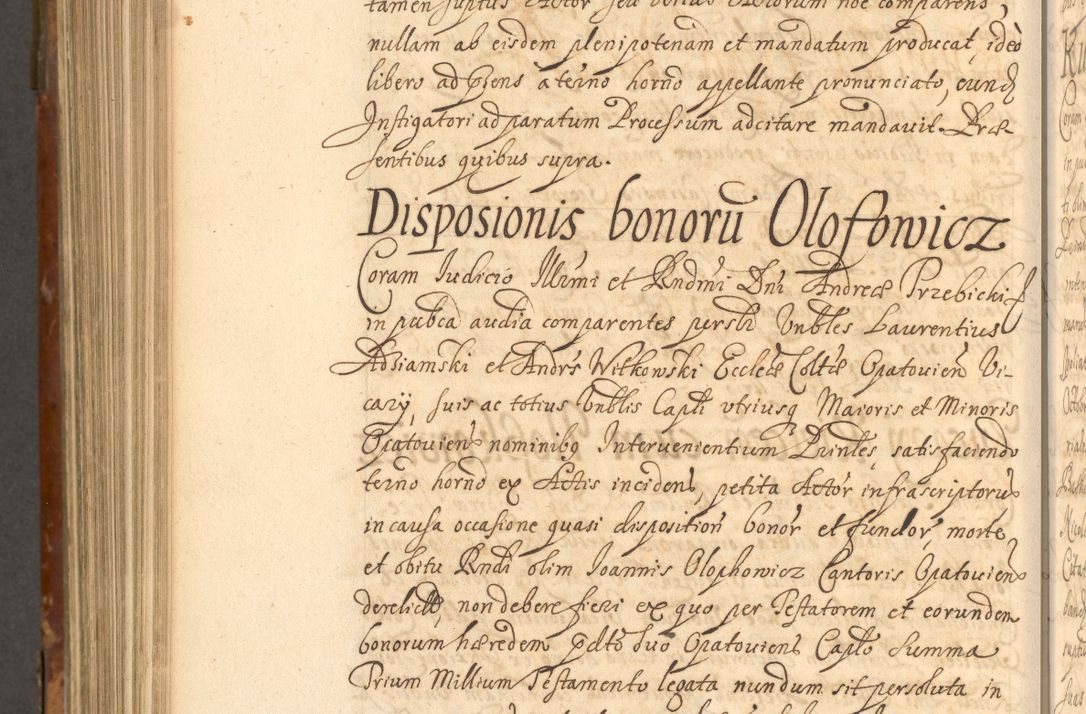 nullam ab eisdem plenipotenām et mandatum producat, ideò
libero ad pn̄s a termo horno appellante pronunciato, eundē
Instigatori ad paratum Processum adcitare mandavit. Præ
sentibus quibus supra.
Disposionis bonorū Olofowicz
Coram Iudicio Illrmi et Rndmi Dni Andreæ Przebichi
in pubcā audiā comparentes persli Vnbles Laurentius
Adziamski et Andrs Witkowski Ecclæ Coltæ Opatouien̄ Vi-
carÿ, suis ac totius Vnblis Capli utriusq Maioris et Minoris
Opatouiens nominibq Intervenientium Prinles, satisfaciendo
termo horno ex Actis incidens, petita Actor infrascriptorus
in causa occasione quasi disposition bonor et fundor, morte
et obitu Rndi olim Ioannis Olophowicz Cantoris Opatouiens
derelict, non debere fieri ex quo per Testatorem et eorundem
bonorum hæredem pdto suo Opatouiens Caplo summa
Trium Millium Testamento legata nundum sit persoluta in